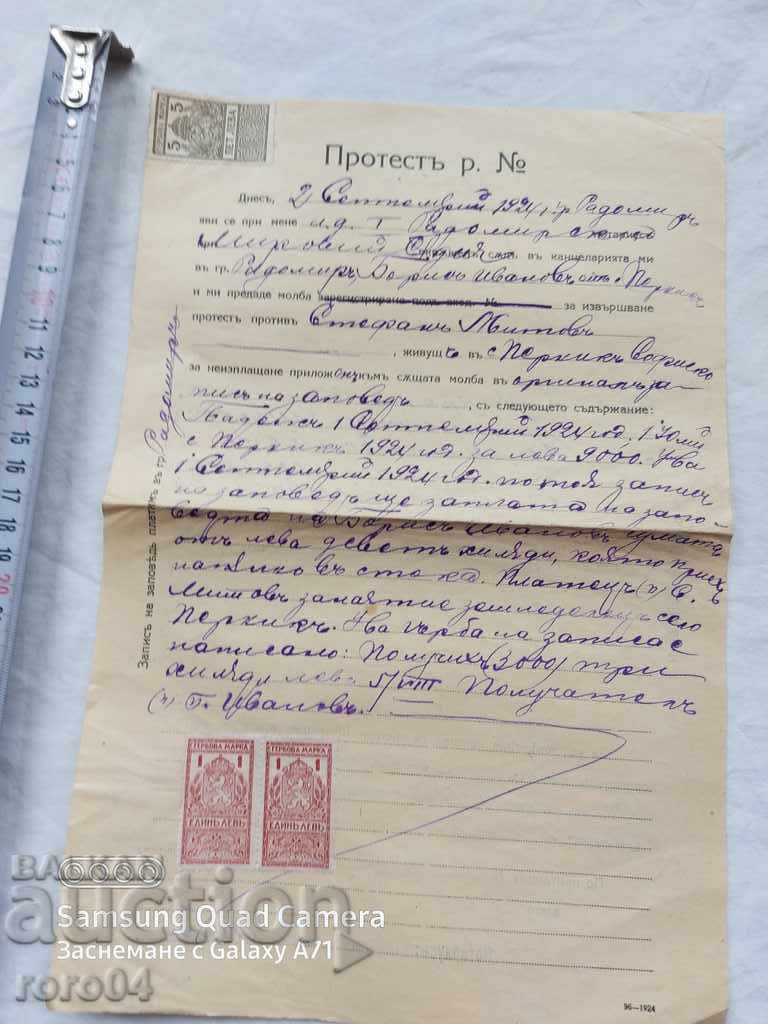 5 ПЕТ ЛЕВА 5
Протестъ р. №
Днесъ, 2 Септемврий 1924 г. гр. Радомиръ
яви се при мене и. д. I Радомирски нотариусъ
при Мировий Съдия сѫд. въ канцеларията ми
въ гр. Радомиръ, Борисъ Ивановъ отъ с. Перникъ
и ми предаде молба зарегистрирана подъ вход. № за извършване
протестъ противъ Стефанъ Митовъ
, живущъ въ с. Перникъ Софийско
за неизплащане приложения къмъ сѫщата молба въ оригиналъ за-
пись на заповедъ, съ следующето съдържание:
1 Септемврий 1924 год. 1 Юлий
с. Перникъ 1924 год. за лева 9000. На
1 Септемврий 1924 год. по тоя запись
на заповедъ ще заплатя на запо-
ведта на Борисъ Ивановъ сумата
отъ лева деветь хиляди, която приехъ
напълно въ стока. Платецъ (п) С.
Митовъ занаятие земледелецъ село
Перникъ. На гърба на записа е
написано: Получихъ (3000) три
хиляди лева 5/VIII Получателъ
(п) Б. Ивановъ.
Записъ на заповѣдь платимъ въ гр. Радомиръ
ГЕРБОВА МАРКА ГЕРБОВА МАРКА
1 1 1 1
ЕДИНЪ ЛЕВЪ ЕДИНЪ ЛЕВЪ
БАЛКАН
auction
Samsung Quad Camera
Заснемане с Galaxy A71
roro04
96—1924